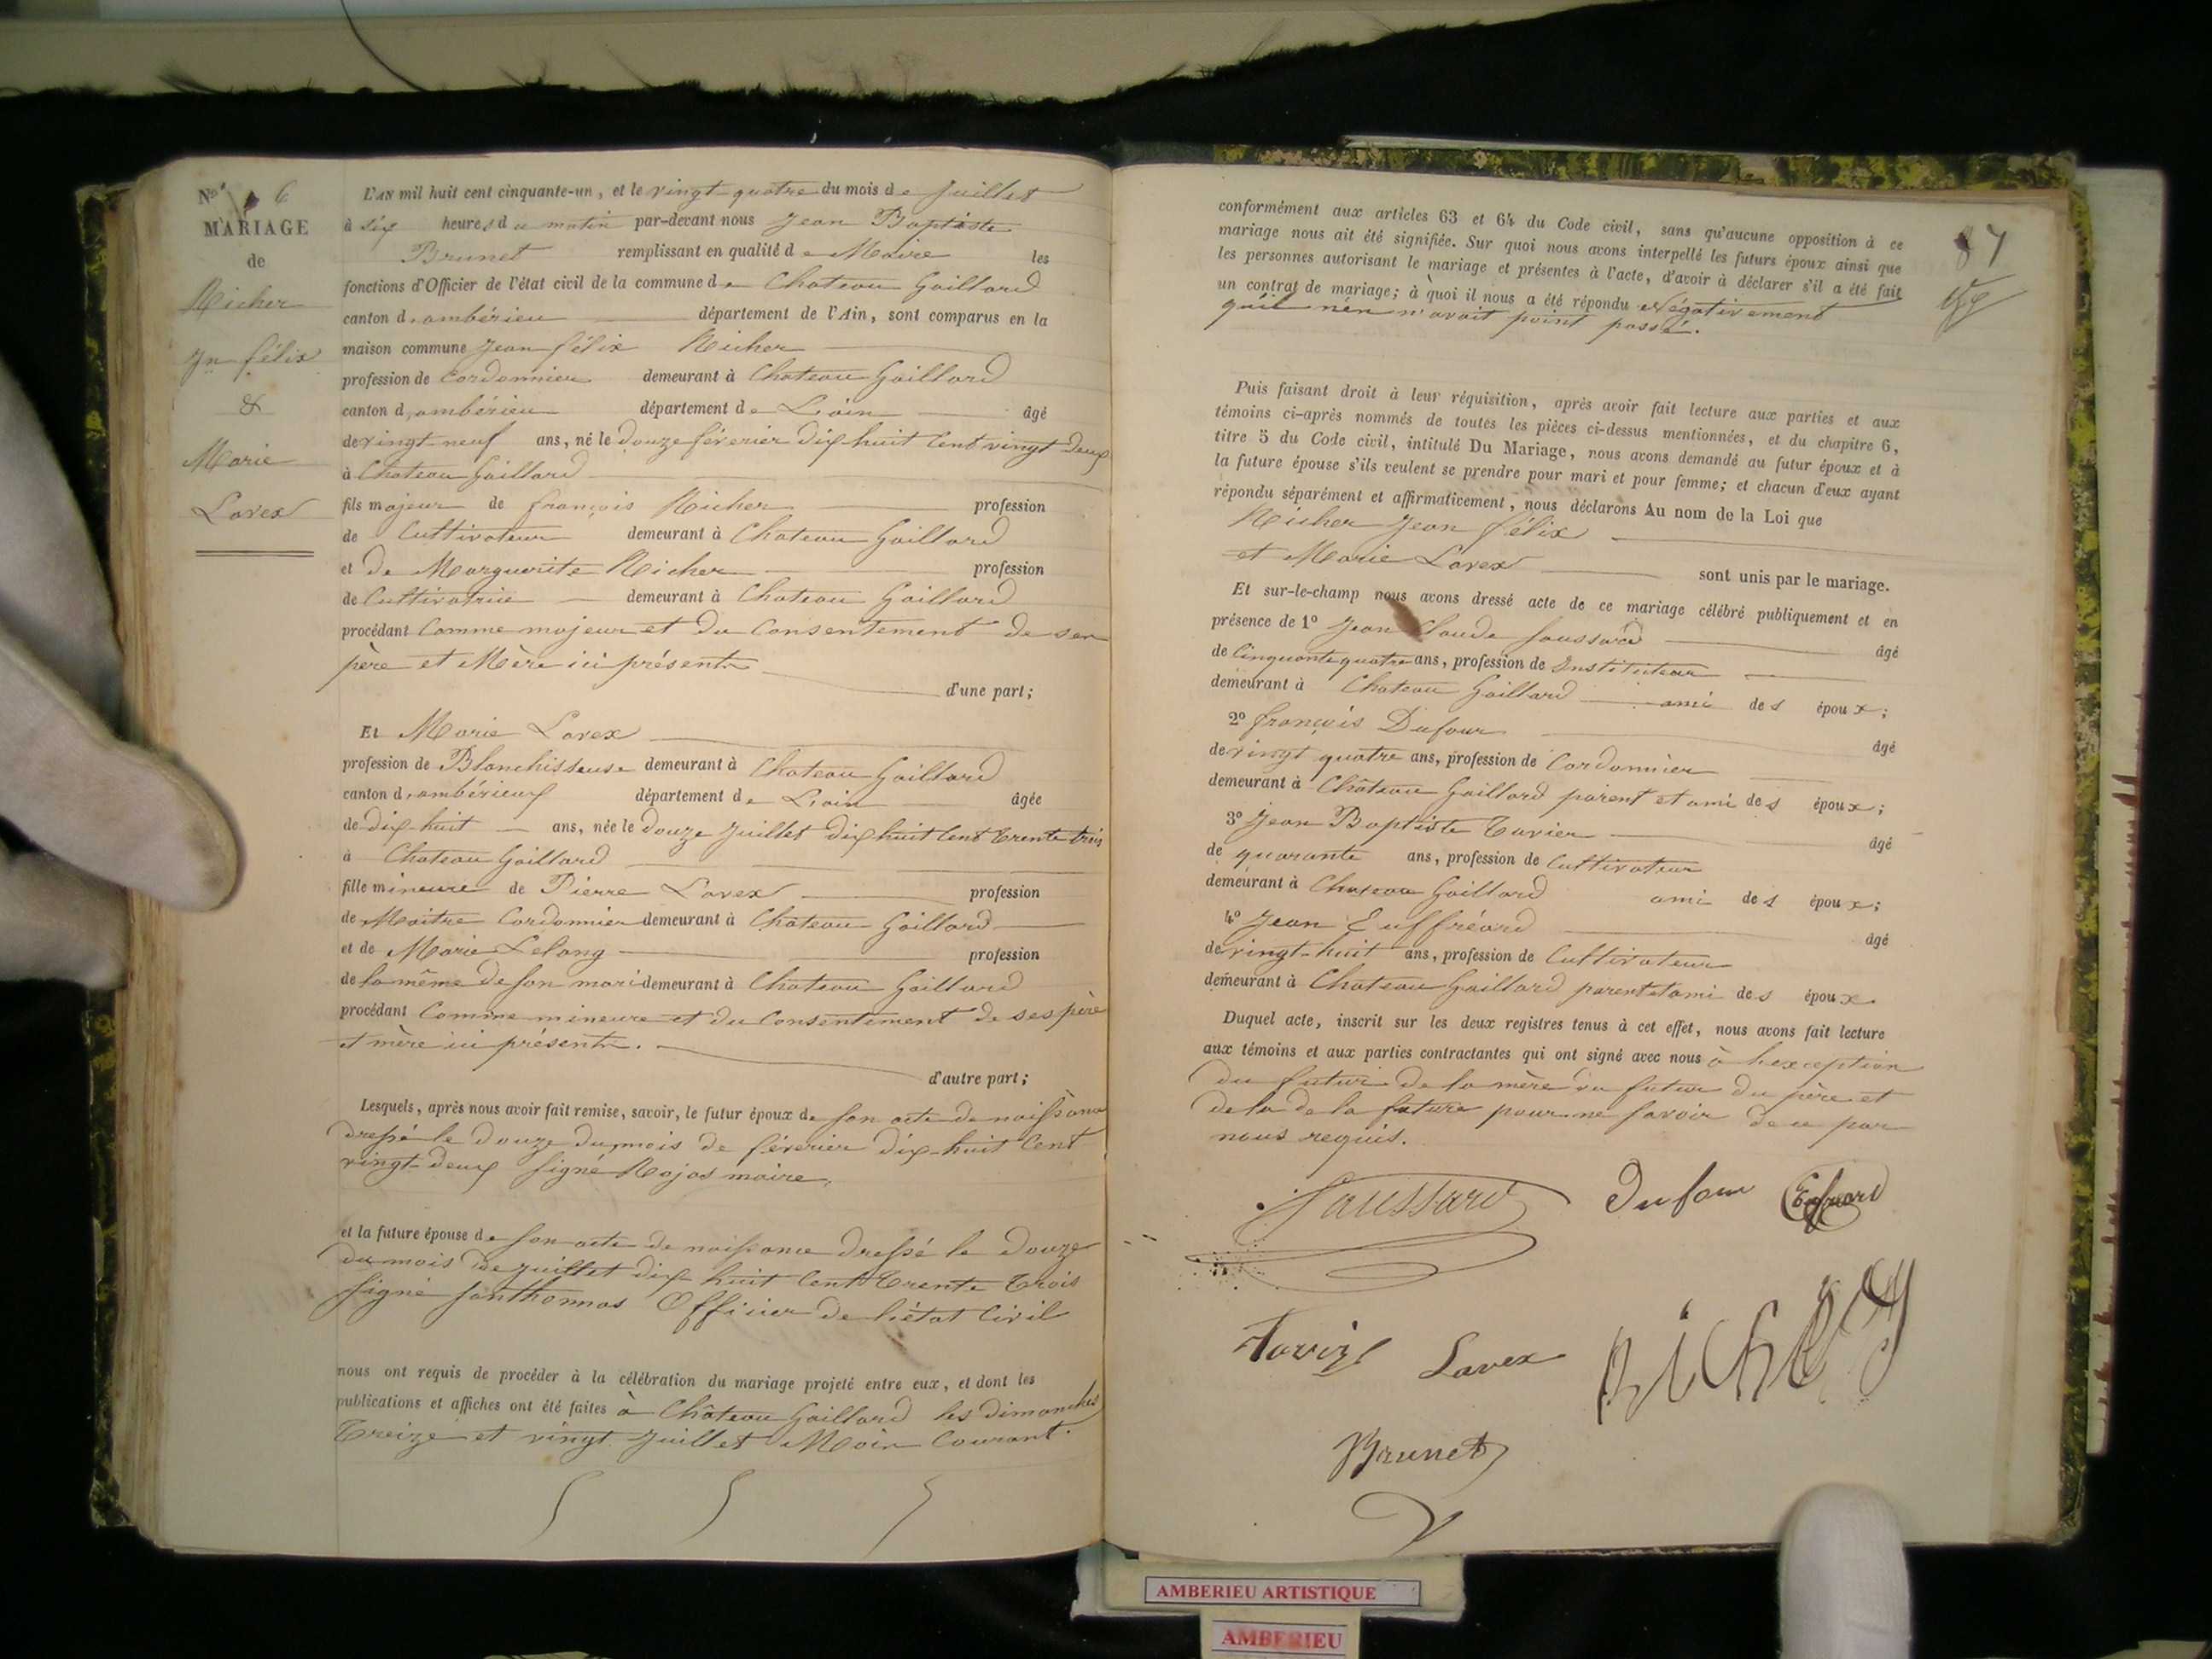 No 6
MARIAGE
de
Richer
Jn félix
&
Marie
Lavex
L'AN mil huit cent cinquante-un, et le vingt-quatre du mois de Juillet
à six heures du matin par-devant nous Jean Baptiste
Brunet remplissant en qualité de Maire les
fonctions d'Officier de l'état civil de la commune de Chateau Gaillard
canton d'ambérieu département de l'Ain, sont comparus en la
maison commune Jean félix Richer
profession de Cordonnier demeurant à Chateau Gaillard
canton d'ambérieu département de L'ain âgé
de vingt-neuf ans, né le douze féverier dix huit Cent vingt deux
à Chateau Gaillard
fils majeur de françois Richer profession
de Cultivateur demeurant à Chateau Gaillard
et de Marguerite Richer profession
de Cultivatrice demeurant à Chateau Gaillard
procédant Comme majeur et du Consentement de ses
père et Mère ici présents
d'une part;
Et Marie Lavex
profession de Blanchisseuse demeurant à Chateau Gaillard
canton d'ambérieux département de L'ain âgée
de dix-huit ans, née le douze Juillet dix huit Cent trente trois
à Chateau Gaillard
fille mineure de Pierre Lavex profession
de Maitre Cordonnier demeurant à Château Gaillard
et de Marie Lelong profession
de la même de son mari demeurant à Chateau Gaillard
procédant Comme mineure et du Consentement de ses père
et mère ici présents.
d'autre part;
Lesquels, après nous avoir fait remise, savoir, le futur époux de son acte de naissance
dressé le douze du mois de féverier dix-huit Cent
vingt-deux signé Rojas maire,
et la future épouse de son acte de naissance dressé le douze
du mois de Juillet dix huit Cent Trente Trois
signé Janthomas Officier de l'état Civil
nous ont requis de procéder à la célébration du mariage projeté entre eux, et dont les
publications et affiches ont été faites à Château Gaillard les dimanches
Treize et vingt Juillet Mois Courant.
87
conformément aux articles 63 et 64 du Code civil, sans qu'aucune opposition à ce
mariage nous ait été signifiée. Sur quoi nous avons interpellé les futurs époux ainsi que
les personnes autorisant le mariage et présentes à l'acte, d'avoir à déclarer s'il a été fait
un contrat de mariage; à quoi il nous a été répondu Négativement
quil nén n'avait point passé.
Puis faisant droit à leur réquisition, après avoir fait lecture aux parties et aux
témoins ci-après nommés de toutes les pièces ci-dessus mentionnées, et du chapitre 6,
titre 5 du Code civil, intitulé Du Mariage, nous avons demandé au futur époux et à
la future épouse s'ils veulent se prendre pour mari et pour femme; et chacun d'eux ayant
répondu séparément et affirmativement, nous déclarons Au nom de la Loi que
Richer Jean félix
et Marie Lavex sont unis par le mariage.
Et sur-le-champ nous avons dressé acte de ce mariage célébré publiquement et en
présence de 1o Jean Claude Jaussard âgé
de Cinquante quatre ans, profession de Instituteur
demeurant à Chateau Gaillard ami des époux;
2o françois Dufour âgé
de vingt quatre ans, profession de Cordonnier
demeurant à Château Gaillard parent et ami des époux;
3o Jean Baptiste Tavier âgé
de quarante ans, profession de Cultivateur
demeurant à Chateau Gaillard ami des époux;
4o Jean Euffréard âgé
de vingt-huit ans, profession de Cultivateur
demeurant à Chateau Gaillard parent et ami des époux.
Duquel acte, inscrit sur les deux registres tenus à cet effet, nous avons fait lecture
aux témoins et aux parties contractantes qui ont signé avec nous à L'exception
du futur de la mère du futur du père et
de la de la future pour ne savoir de ce par
nous requis.
Jaussard Dufour
Tavier Lavex Richer
Brunet
AMBERIEU ARTISTIQUE
AMBERIEU